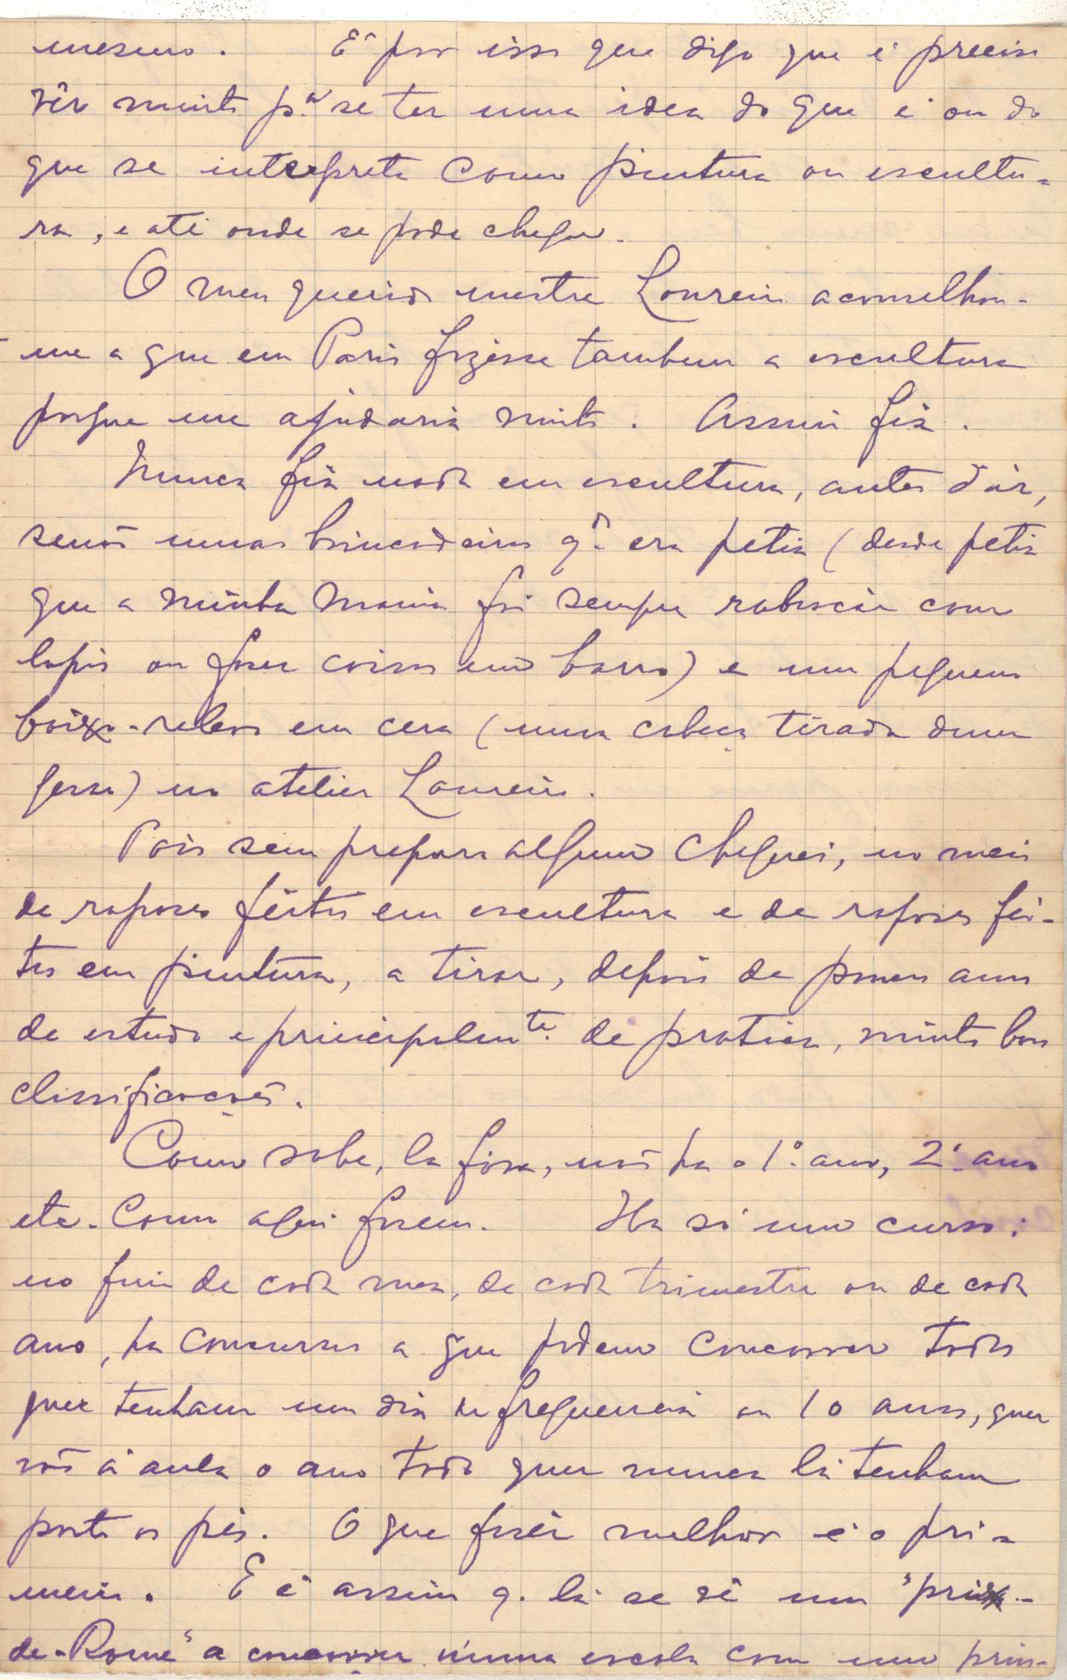 mesmo. É por isso que digo que é preciso
vêr muito p.ª se ter uma idea do que é ou do
que se interpreta como pintura ou escultu-
ra, e até onde se pode chegar.
O meu querido mestre Loureiro aconselhou-
me a que em Paris fizesse tambem a escultura
porque me ajudaria muito. Assim fiz.
Nunca fiz nada em escultura, antes d'ir,
senão umas brincadeiras q.do era petiz (desde petiz
que a minha mania foi sempre rabiscar com
lapis ou fazer coisas em barro) e um pequeno
baixo-relevo em cera (uma cabeça tirada dum
gesso) no atelier Loureiro.
Pois sem preparo algum cheguei, no meio
de rapazes feitos em escultura e de rapazes fei-
tos em pintura, a tirar, depois de poucos anos
de estudo e principalmte. de pratica, muito boas
classificações.
Como sabe, la fóra, não ha o 1.º ano, 2.º ano
etc. como aqui fazem. Ha só um curso:
no fim de cada mez, de cada trimestre ou de cada
ano, ha concursos a que podem concorrer todos
quer tenham um dia de frequencia ou 10 anos, quer
vão á aula o ano todo quer nunca lá tenham
posto os pés. O que fizér melhor é o pri-
meiro. E é assim q. lá se vê um "prix-
de-Rome" a concorrer n'uma escola com um prin-